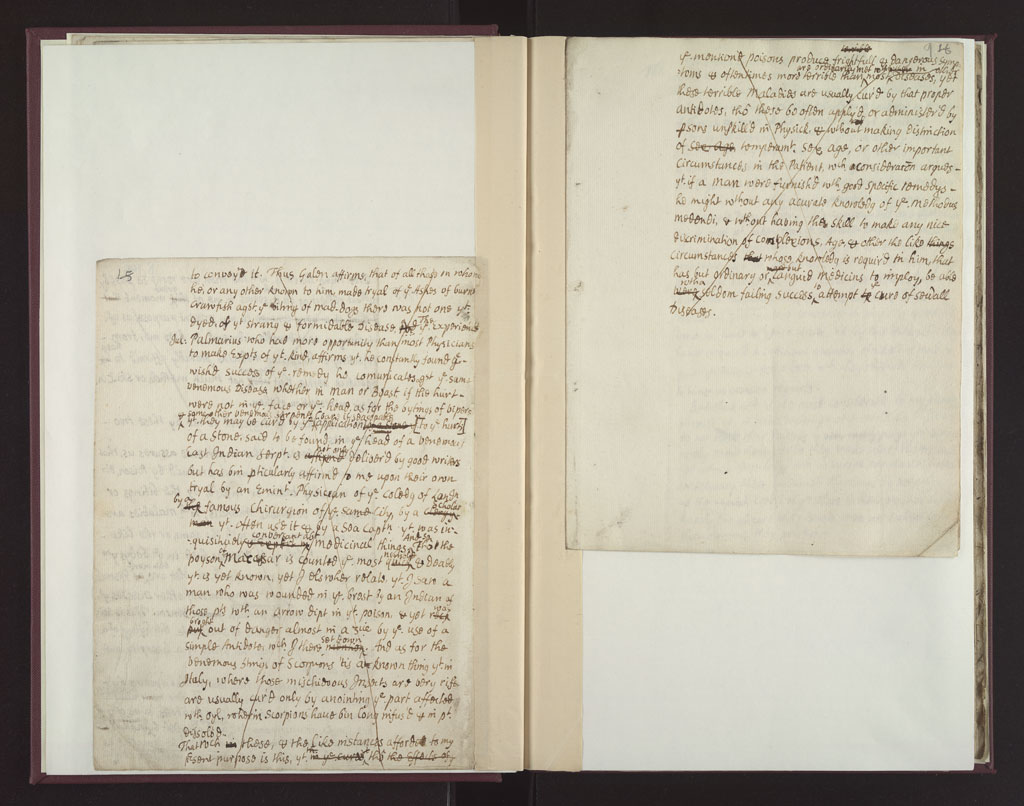 to convey it. Thus Galen affirms, that of all those on whom
he, or any other known to him made tryal of ye Ashes of burnt
Crawfish agst. ye biting of mad-dogs there was not one yt.
dyed of yt strang & formidable disease. And ye Experienc'd
Palmarius who had more opportunity than most Physicians
to make Expts of yt. kind, affirms yt. he constantly found ye-
wish'd success of ye. remedy he comunicates agt ye same
venemous Disease whether in man or Beast if the hurt-
were not in ye. face or ye. head. as for the bytings of Vipers
& some other venemous serpents
yt. they may be cur'd by ye application [to ye hurt]
of a Stone, said to be found in ye head of a venemous
East Indian Serpt. is not only deliver'd by good writers
but has bin pticularly affirm'd to me upon their own
tryal by an Emint. Physician of ye Coledg of Londn
by a famous Chirurgion of ye. same City, by a scholar
man yt. often use it & by a Sea Captn yt. was in-
quisitively conversant abt medicinal things. And tho the
poyson of Macassar is counted ye. most nimble & deadly
yt. is yet known, yet I elswher relate yt. I saw a
man who was wounded in ye. brest by an Indian of
those pts wth an Arrow dipt in yt. poison, & yet was
brought
out of danger almost in a by ye. use of a
simple Antidote, wch I there set down. And as for the
venemous sting of Scorpions 'tis a known thing yt in
Italy, where those mischievous Insects are very rife
are usually cur'd only by anointing ye part affected
wth oyl, wherin Scorpions have bin long infus'd & in pt.
dissolv'd.
That wch these, & the like instances afford to my
psent purpose is this, yt. tho the effects of
15
16
ye. mention'd poisons produce frightfull & dangerous symp
are ordinarily met in
toms & oftentimes more terrible than most Diseases, yet
these terrible Maladies are usually cur'd by that proper
antidotes, tho these be often apply'd, or administer'd by
psons unskill'd in Physick, & without making distinction
of Sex Age, temperamt. Sex, age, or other important
Circumstances in the Patient. wch consideration argues-
yt. if a man were furnish'd wth good specific remedys-
he might without any acurate knowledg of ye. methodus
medendi, & without having the skill to make any nice
discrimination of complexions, Age, & other the like things
Circumstances whose knowledg is requir'd in him that
has but ordinary or languid medicins to imploy, be able
with a
seldom failing success, to attempt ye cure of sevrall
Diseases.